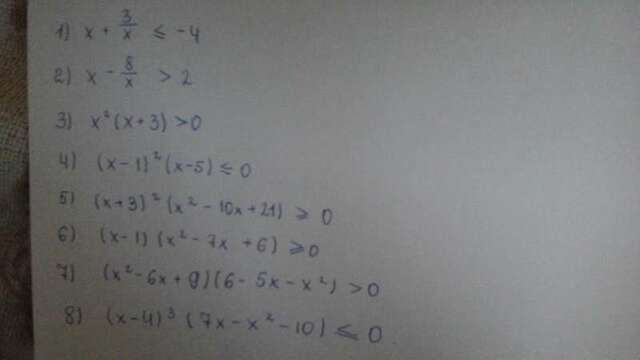 1) x + 3/x ≤ -4
2) x - 8/x > 2
3) x²(x+3)>0
4) (x-1)²(x-5) ≤ 0
5) (x+3)²(x² - 10x + 21) ≥ 0
6) (x-1)(x² - 7x + 6) ≥ 0
7) (x² - 6x + 9)(6 - 5x - x²) > 0
8) (x-4)³(7x - x² - 10) ≤ 0